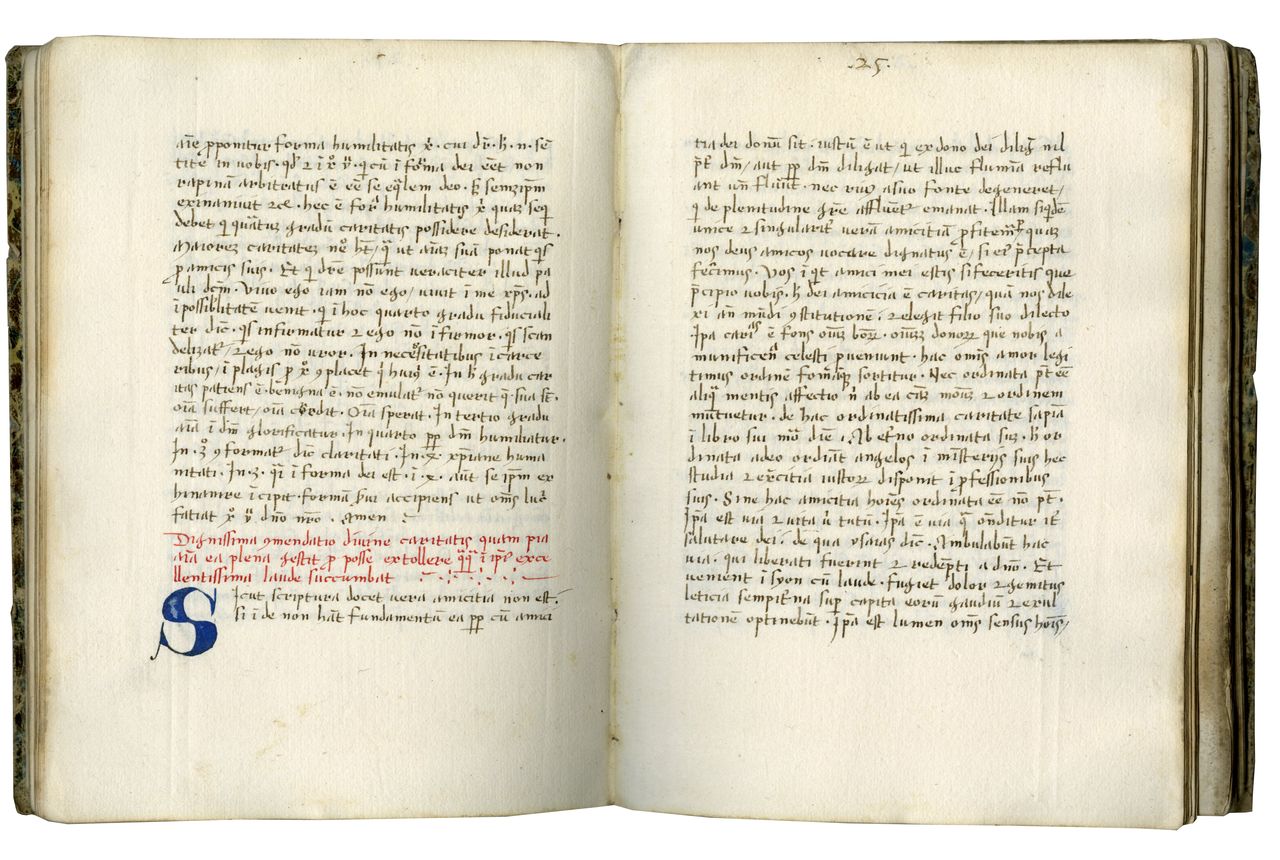 aīe ꝓponitur forma humilitatis xͥ. cui dr̄. h̄. n. sē
tite in vobis. qd̓ ⁊ ī xͦ yͧ. qͥ cū ī forma dei eēt non
rapinā arbitratus ē eē se eq̄lem deo. sꝫ semꝫip̄m
exinanivit ⁊cꝉ. hec ē forͣ humilitatis xͥ quaꝫ seq̄
debet qͥ quātuꝫ gradū caritatis possidere desiderat.
Maioreꝫ caritateꝫ neͦ ht̄/ qͣ ut aīaꝫ suā ponat qͥs
ꝓ amicis suis. Et qͥ dr̄e possunt veraciter illud pa
uli dcm̄. Vivo ego iam nō ego/ vivit ī me xp̄s. ad
ī possibilitatē venit. qͥ ī hoc quarto gradu fiduciali
ter dic̄. qͥs infirmatur ⁊ ego nō ī firmor. qͥs scan
delizat̄/ ⁊ ego nō uror. In necessitatibus ī carce
ribus/ ī plagis ꝑ xͦ ꝯplacet qͥ huiꝰ ē. In h̄ gradu car
itas patiens ē. benigna ē. nō emulat̄ nō querit qͣ sua st̄.
oīa suffert/ oīa credit. Oīa sperat. In tertio gradu
aīa ī dm̄ glorificatur. In quarto ꝓp̄ dm̄ humiliatur.
In. 3ͦ ꝯformat̄ dic claritati. In. 4 xp̄iane huma
nitati. In. 3. qͣi ī forma dei est. ī. 4. aūt se ip̄m ex
hinanire ī cipit. formā s̄vi accipiens ut om̄s luc̄
fatiat xͦ yͧ dnō nrō. Amen :
Dignissima ꝯmendatio divine caritatis quam pia
aīa ea plena gestit ꝓ posse extollere qͣqͣ ī ip̄i exce
llentissima laude succumbat
Sicut scriptura docet vera amicitia non est.
si ī de non hāt fundamentū ea ꝓp̄ cū amici
.25.
tia dei donū sit. iustū ē ut qͥ ex dono dei diliḡ nil
p̄t̄ dm̄/ aut ꝓp̄ dm̄ diligat/ ut illuc flumīa reflu
ant un̄ fluūt. nec rivꝰ a suo fonte degeneret/
qͥ de plenitudine gr̄e affluent̄ emanat. Illam siqͥdē
unice ⁊ singularit̄ verā amicitiā ꝓfitem̄r quaꝫ
nos deus amicos vocare dignatus ē/ si eiꝰ p̄cepta
fecimus. Vos ī qͥt amici mei estis si feceritis que
p̄cipio vobis. h̄ dei amicicia ē caritas/ quā nos dile
xi an̄ mūdi ꝯstitutionē. ⁊ elegit filio suo dilecto
Ip̄a cariͭas ē fons omīuꝫ bonoꝝ. omīuꝫ donoꝝ que nobis a
munificentͣ celesti ꝓveniunt. hac om̄is amor legi
timus ordinē formāqꝫ sortitur. Nec ordinata p̄t eē
aliqͣ mentis affectio n̄ ab ea cāꝫ modūꝫ ⁊ ordinem
mutuetur. de hac ordinatissima caritate sapia
ī libro sui mō dic̄. Ab et̄no ordinata suꝫ. h̄ or
dinata adeo ordiāt angelos ī misterijs suis hec
studia ⁊ exercitia iustoꝝ disponit ī ꝓfessionibus
suis. Sine hac amicitia hoīes ordinata eē nō p̄t.
Ip̄a est via ⁊ vita v̄ tuti. Ip̄a ē via qͣ on̄ditur it̄
salutare dei. de qua ysaias dic̄. Ambulabūt hac
via. qui liberati fuerint ⁊ redēpti a dnō. Et
venient ī syon cū laude. fugiet dolor ⁊ gemitus
leticia sempit̄na suꝑ capita eorū gaudiū ⁊ exul
tationē optinebūt. Ip̄a est lumen om̄s sensus hoīs/